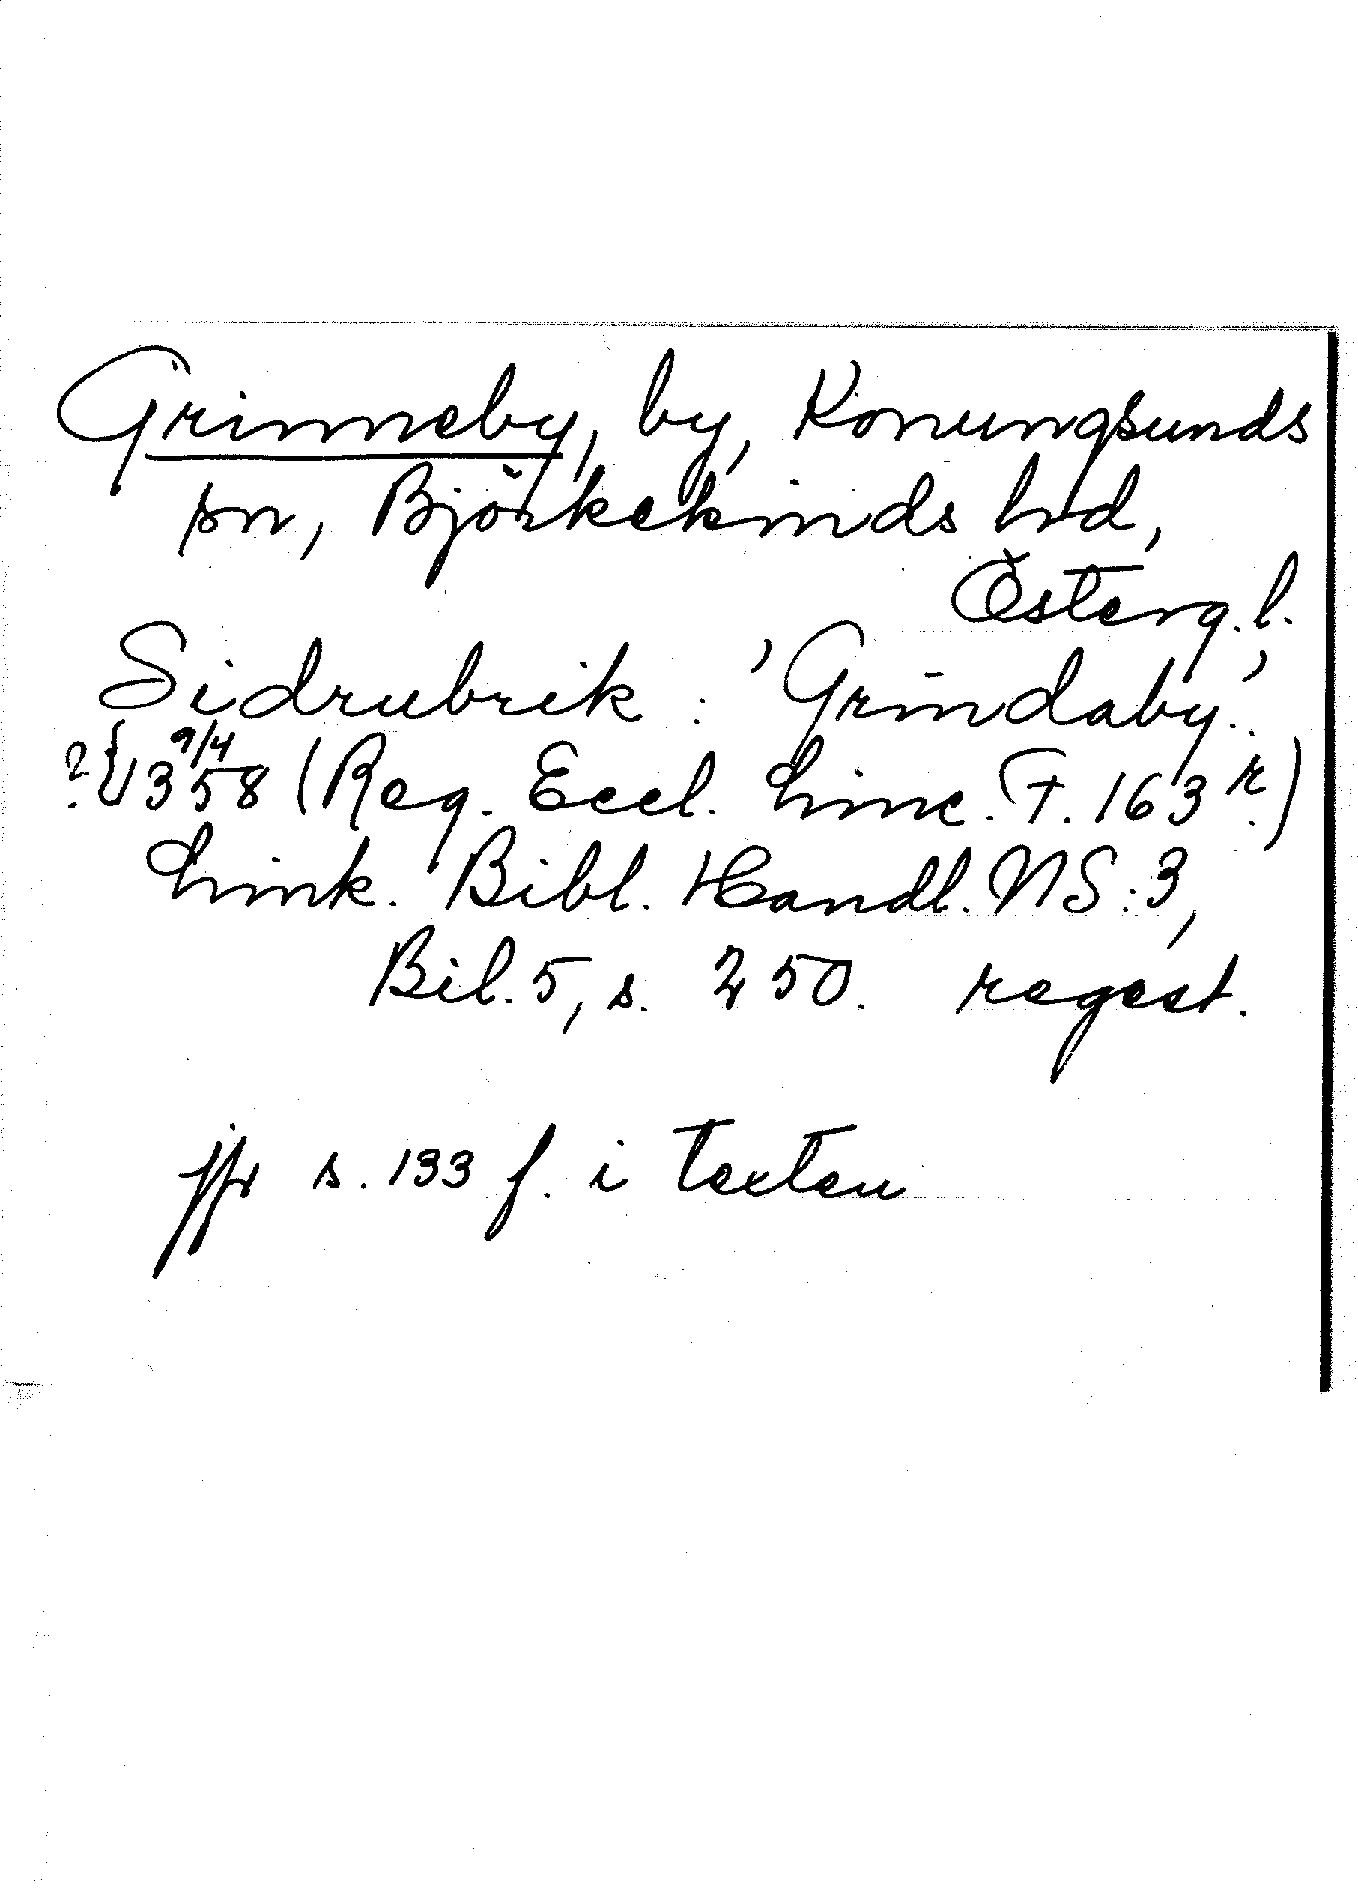 Grinneby, by, Konungsunds
sn, Björkekinds hd,
Österg.l.
Sidrubrik: 'Grindaby.'
?{ 1358 9/4 (Reg. Eccl. Linc. F. 163 r.)
Link. Bibl. Handl. NS:3,
Bil. 5, s. 250. regest.
jfr s. 133 f. i texten